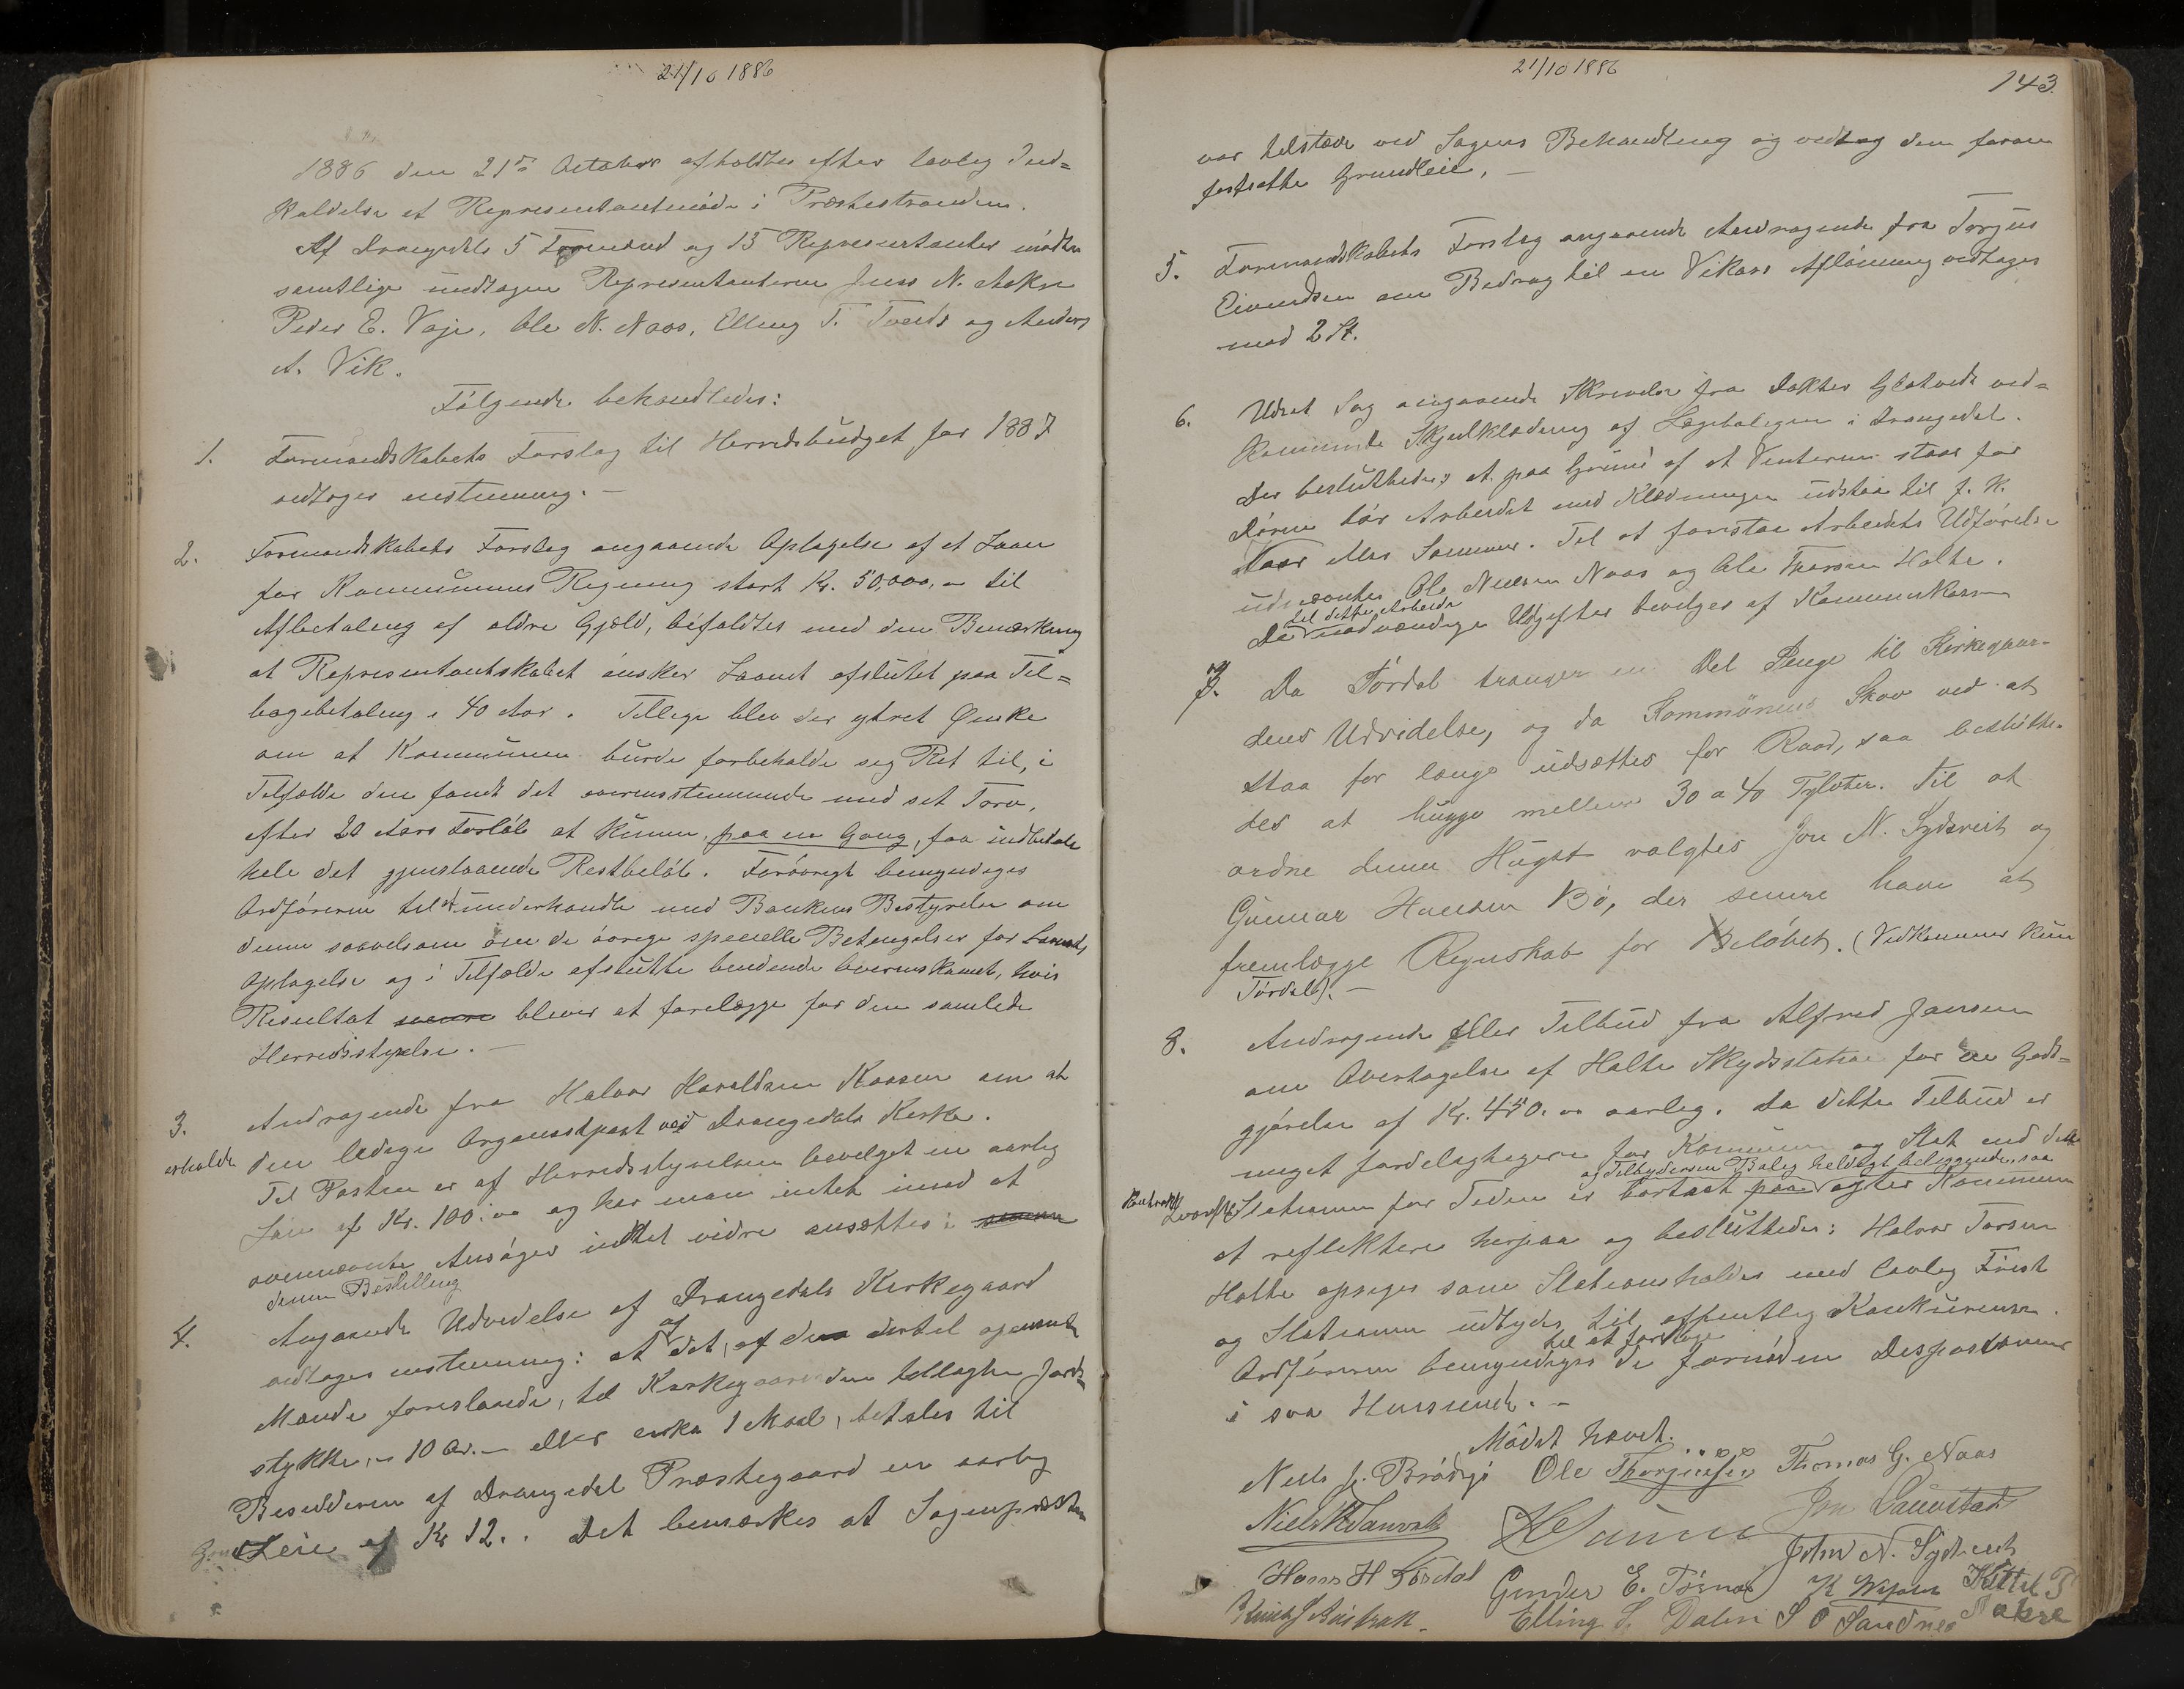 21/10 1886
1886 den 21de October afholdtes efter lovlig Ind=
kaldelse et Representantmøde i Præstestranden.
Af Drangedals 5 Formænd og 15 Representanter mødte
samtlige undtagen Representanterne Jens N. Aakre
Peder E. Voje, Ole N. Naas, Elling T. Tveids og Anders
A. Vik.
Følgende behandledes:
1. Formandskabets Forslag til Herredsbudget for 1887
vedtoges enstemmig. –
2. Formandskabets Forslag angaaende Optagelse af et Laan
for Kommunens Regning stort Kr. 50,000,00 til
Afbetaling af ældre Gjæld, bifaldtes med den Bemærkning
at Representantskabet ønsker Laanet afsluttet paa Til=
bagebetaling i 40 Aar. Tillige blev der ytret Ønske
om at Kommunen burde forbeholde sig Ret til, i
Tilfælde den fandt det overensstemmende med sit Tarv,
efter 20 Aars Forløb at kunne, paa en Gang, faa indbetale
hele det gjenstaaende Restbeløb. Forøvrigt bemyndiges
Ordføreren til at underhandle med Bankens Bestyrelse om
denne saavelsom om de øvrige specielle Betingelser for Laanets
Optagelse og i Tilfælde afslutte bindende Overenskomst, hvis
Resultat senere bliver at forelægge for den samlede
Herredsstyrelse. –
3. Andragende fra Halvor Haraldsen Kaasen om at
erholde den ledige Organistpost ved Drangedals Kirke.
Til Posten er af Herredsstyrelsen bevilget en aarlig
Løn af Kr. 100,00 og har man intet imod at
ovennævnte Ansøger indtil vidre ansættes i
denne Bestilling
4. Angaaende Udvidelse af Drangedals Kirkegaard
vedtoges enstemmig: at det, af de dertil opnævnte
af
Mænd foreslaaede, til Kirkegaarden tillagte Jord=
stykke, 10 Ar. – eller cirka 1 Maal, betales til
Besidderen af Drangedal Præstegaard en aarlig
Grundleie af Kr 12.. Det bemærkes at Sognepræsten
21/10 1886
143.
var tilstede ved Sagens Behandling og vedtog den foran
fastsatte Grundleie, –
5. Formandskabets Forslag angaaende Andragende fra Torjus
Eivindsen om Bidrag til en Vikars Aflønning vedtoges
mod 2 St.
6. Udsat Sag angaaende Skrivelse fra Doktor Gjætvedt ved=
kommende Skjulklædning af Lægeboligen i Drangedal.
Der besluttedes; at paa Grund af at Vinteren staar for
Døren bør Arbeidet med Klædningen udstaa til f. K.
Vaar eller Sommer. Til at forestaa Arbeidets Udførelse
udnævntes Ole Nielsen Naas og Ole Thorsen Holte.
til dette Arbeide
De nødvændige Udgifter bevilges af Kommunekassen
7. Da Tørdal trænger en Del Penge til Kirkegaar-
dens Udvidelse, og da Kommunens Skov ved at
staa for længe udsættes for Raad, saa beslutte-
des at hugge mellem 30 a 40 Tylvter. Til at
ordne denne Hugst valgtes Jon N. Sydtveit og
Gunnar Hansen Bø, der senere have at
fremlægge Regnskab for Beløbet. (Vedkommer kun
Tørdal). –
8. Andragende eller Tilbud fra Alfred Jansen
om Overtagelse af Holte Skydsstation for en Godt=
gjørelse af Kr. 450.00 aarlig. Da dette Tilbud er
meget fordelagtigere for Kommunen og Stat end dette
og Tilbyderens Bolig heldigt beliggende, saa
Kontrakt Stationen for Tiden er bortsat paa agter Kommunen
at reflektere herpaa og besluttedes: Halvor Torsen
Holte opsiges som Stationsholder med lovlig Frist
og Stationen udbydes til offentlig Konkurrense.
til at foretage
Ordføreren bemyndiges de fornødne Dispositioner
i saa Henseende. –
Mødet hævet.
Niels J. Brødsjø Ole Thorjussen Thomas G. Naas
Jon Laurstad
John N. Sydtveit
Hans H Tørdal Gunder E. Tørnes Kittel P
Elling L. Dalen S O Sandnes Aakre